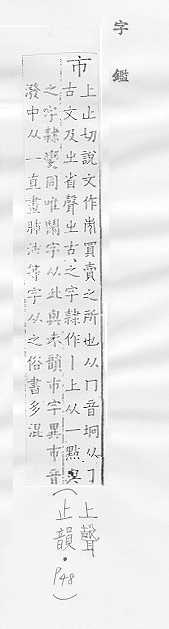 字鑑
市
上止切說文作𡴆買賣之所也从冂音坰从乁
古文及㞢省聲㞢古之字隸作丨上从一點與
之字隸變同唯鬧字从此與末韻巿字異巿音
潑中从一直畫肺沛等字从之俗書多混
(上聲
止韻·P48)